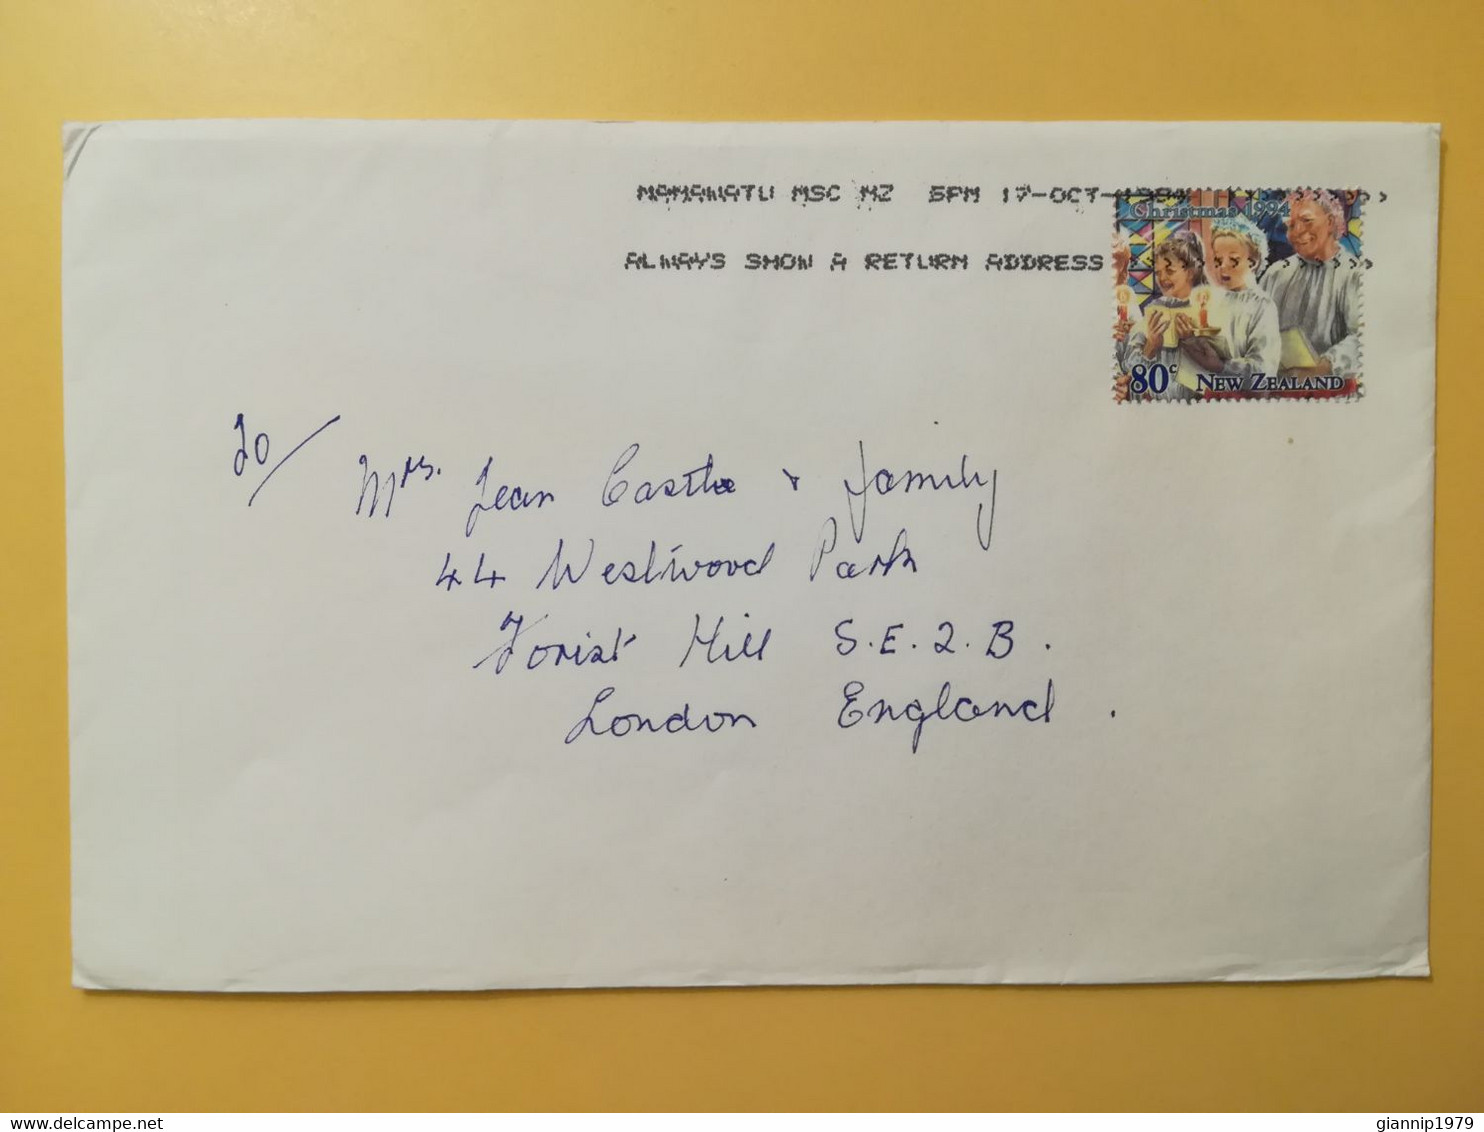 MANAWATU MSC NZ 5PM 17-OCT-1994
ALWAYS SHOW A RETURN ADDRESS
Christmas 1994
80c NEW ZEALAND
To/
Mrs. Jean Castle & family
44 Westwood Park
Forist Hill S.E.2.B.
London England.
giannip1979